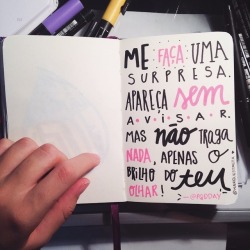 ME FAÇA UMA
SURPRESA.
APAREÇA sem
AVISAR.
MAS não TRAGA
NADA, APENAS O
BRILHO DO teu
OLHAR!